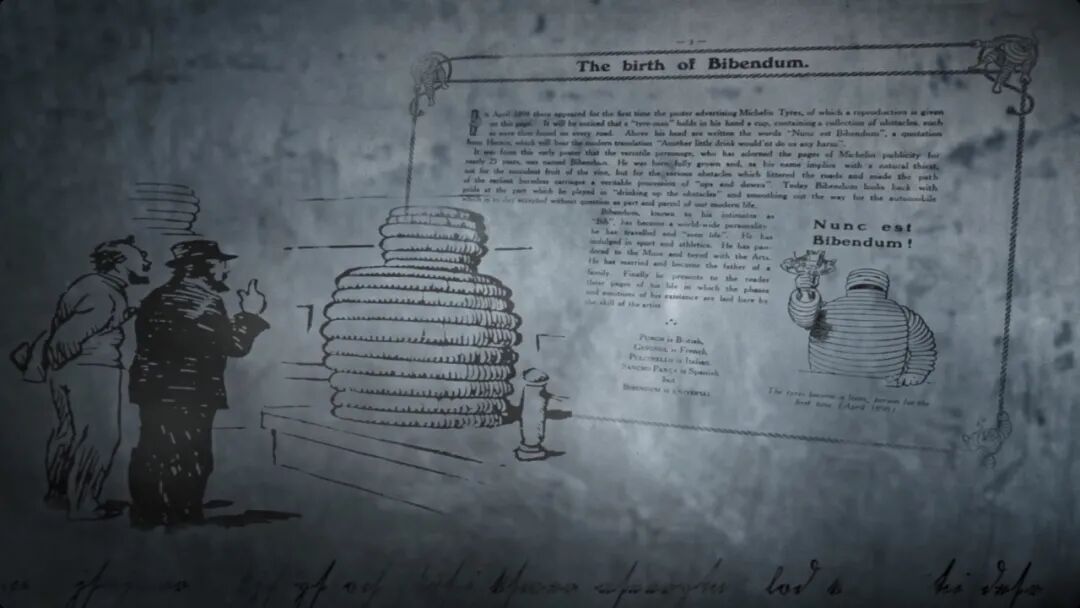 — 3 —
The birth of Bibendum.
In April 1898 there appeared for the first time the poster advertising Michelin Tyres, of which a reproduction is given
on this page. It will be noticed that a "tyre-man" holds in his hand a cup, containing a collection of obstacles, such
as were then found on every road. Above his head are written the words "Nunc est Bibendum", a quotation
from Horace, which will bear the modern translation "Another little drink would'nt do us any harm".
It was from this early poster that the versatile personage, who has adorned the pages of Michelin publicity for
nearly 25 years, was named Bibendum. He was born fully grown and, as his name implies with a natural thirst,
not for the succulent fruit of the vine, but for the various obstacles which littered the roads and made the path
of the earliest horseless carriages a veritable procession of "ups and downs". Today Bibendum looks back with
pride at the part which he played in "drinking up the obstacles" and smoothing out the way for the automobile
which is to-day accepted without question as part and parcel of our modern life.
Bibendum, known to his intimates as
"Bib", has become a world-wide personality
he has travelled and "seen life". He has
indulged in sport and athletics. He has pan-
dered to the Muse and toyed with the Arts.
He has married and become the father of a
family. Finally he presents to the reader
these pages of his life in which the phases
and emotions of his existance are laid bare by
the skill of the artist.
Nunc est
Bibendum!
PUNCH is British,
is French,
PULCINELLO is Italian,
SANCHO PANÇA is Spanish
but
BIBENDUM is UNIVERSAL
The tyres become a man, person for the
first time (April 1898)